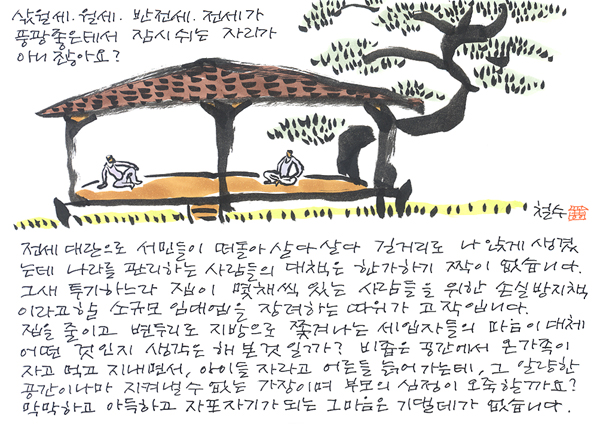 삯월세. 월세. 반전세. 전세가
풍광좋은데서 잠시 쉬는 자리가
아니 잖아요?
철수
전세 대란으로 서민들이 떠돌아 살다 살다 길거리로 나 앉게 생겼
는데 나라를 관리하는 사람들의 대책은 한가하기 짝이 없습니다.
그새 투기하느라 집이 몇채씩 있는 사람들을 위한 손실방지책
이라고할 소규모 임대업을 장려하는 따위가 고작입니다.
집을 줄이고 변두리로 지방으로 쫓겨나는 세입자들의 마음이 대체
어떤 것인지 생각은 해 본 것일까? 비좁은 공간에서 온가족이
자고 먹고 지내면서, 아이들 자라고 어른들 늙어가는데, 그 알량한
공간이나마 지켜낼 수 없는 가장이며 부모의 심정이 오죽할까요?
막막하고 아득하고 자포자기가 되는 그마음은 기댈데가 없습니다.